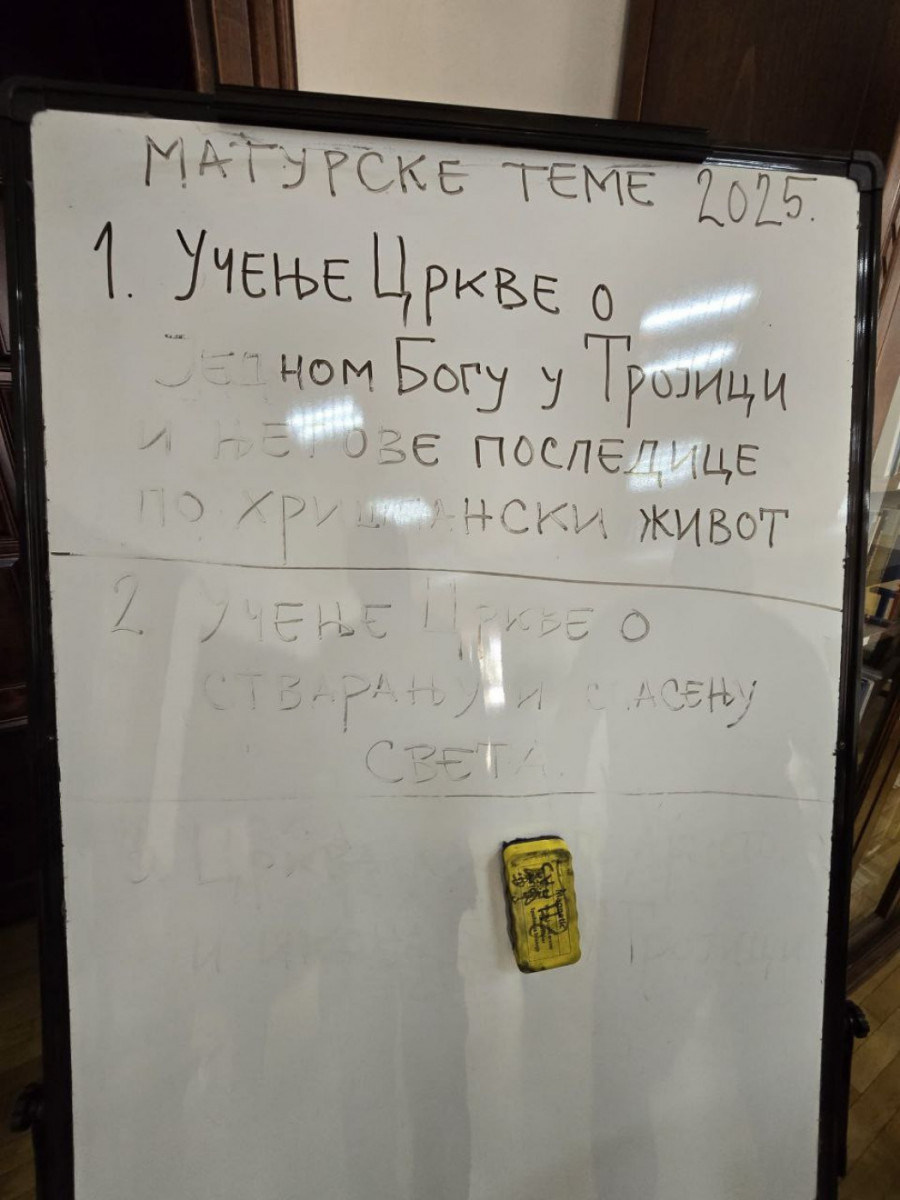 МАТУРСКЕ ТЕМЕ 2025.
1. УЧЕЊЕ ЦРКВЕ О
ЈЕДНОМ БОГУ У ТРОЈИЦИ
И ЊЕГОВЕ ПОСЛЕДИЦЕ
ПО ХРИШЋАНСКИ ЖИВОТ
2. УЧЕЊЕ ЦРКВЕ О
СТВАРАЊУ И СПАСЕЊУ
СВЕТА.